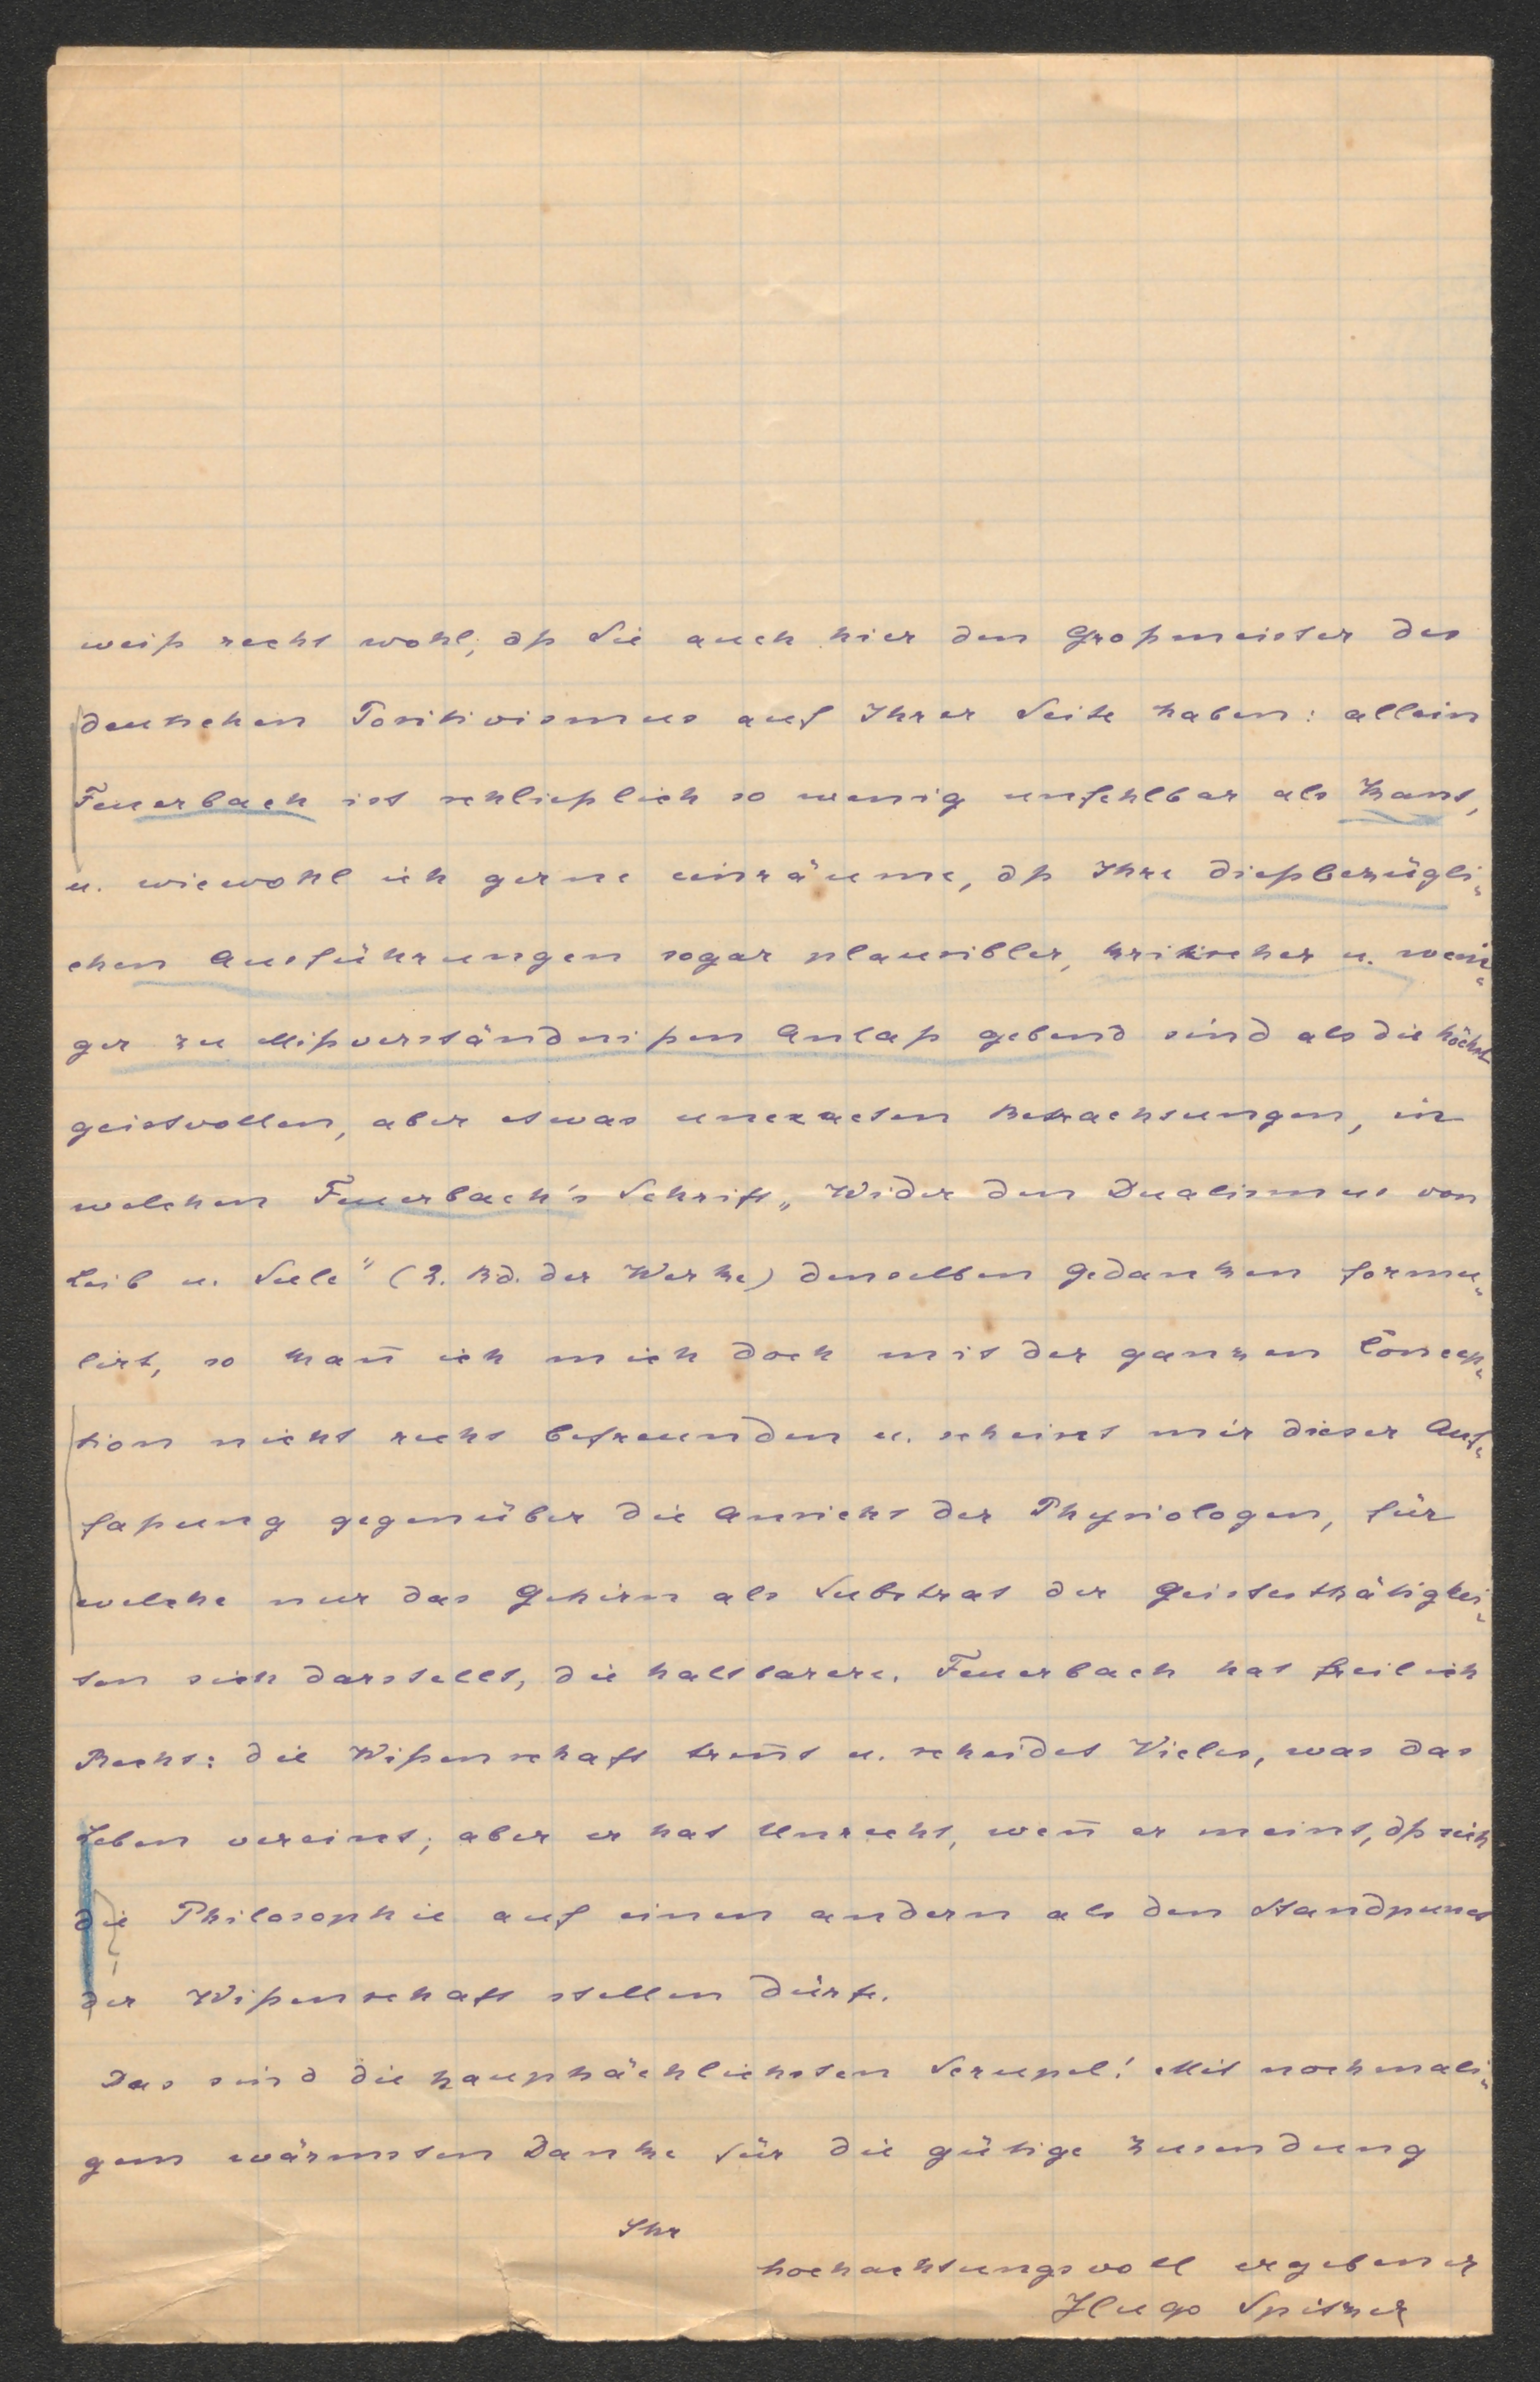 weiß recht wohl, dß Sie auch hier den Großmeister des
deutschen Positivismus auf Ihrer Seite haben: allein
Feuerbach ist schließlich so wenig unfehlbar als Kant,
u. wiewohl ich gerne einräume, dß Ihre dießbezügli-
chen Ausführungen sogar plausibler, kritischer u. weni-
ger zu Mißverständnißen Anlaß gebend sind als die höchst
geistvollen, aber etwas unexacten Betrachtungen, in
welchen Feuerbach's Schrift „Wider den Dualismus von
Leib u. Seele" (2. Bd. der Werke) denselben Gedanken formu-
lirt, so kan̄ ich mich doch mit der ganzen Concep-
tion nicht recht befreunden u. scheint mir dieser Auf-
faßung gegenüber die Ansicht der Physiologen, für
welche nur das Gehirn als Substrat der Geistesthätigkei-
ten sich darstellt, die haltbarere. Feuerbach hat freilich
Recht: die Wißenschaft tren̄t u. scheidet Vieles, was das
Leben vereint; aber er hat Unrecht, wen̄ er meint, dß sich
die Philosophie auf einen andern als den Standpunct
der Wißenschaft stellen dürfe.
Das sind die hauptsächlichsten Scrupel! Mit nochmali-
gem wärmsten Danke für die gütige Zusendung
Ihr
hochachtungsvoll ergebener
Hugo Spitzer